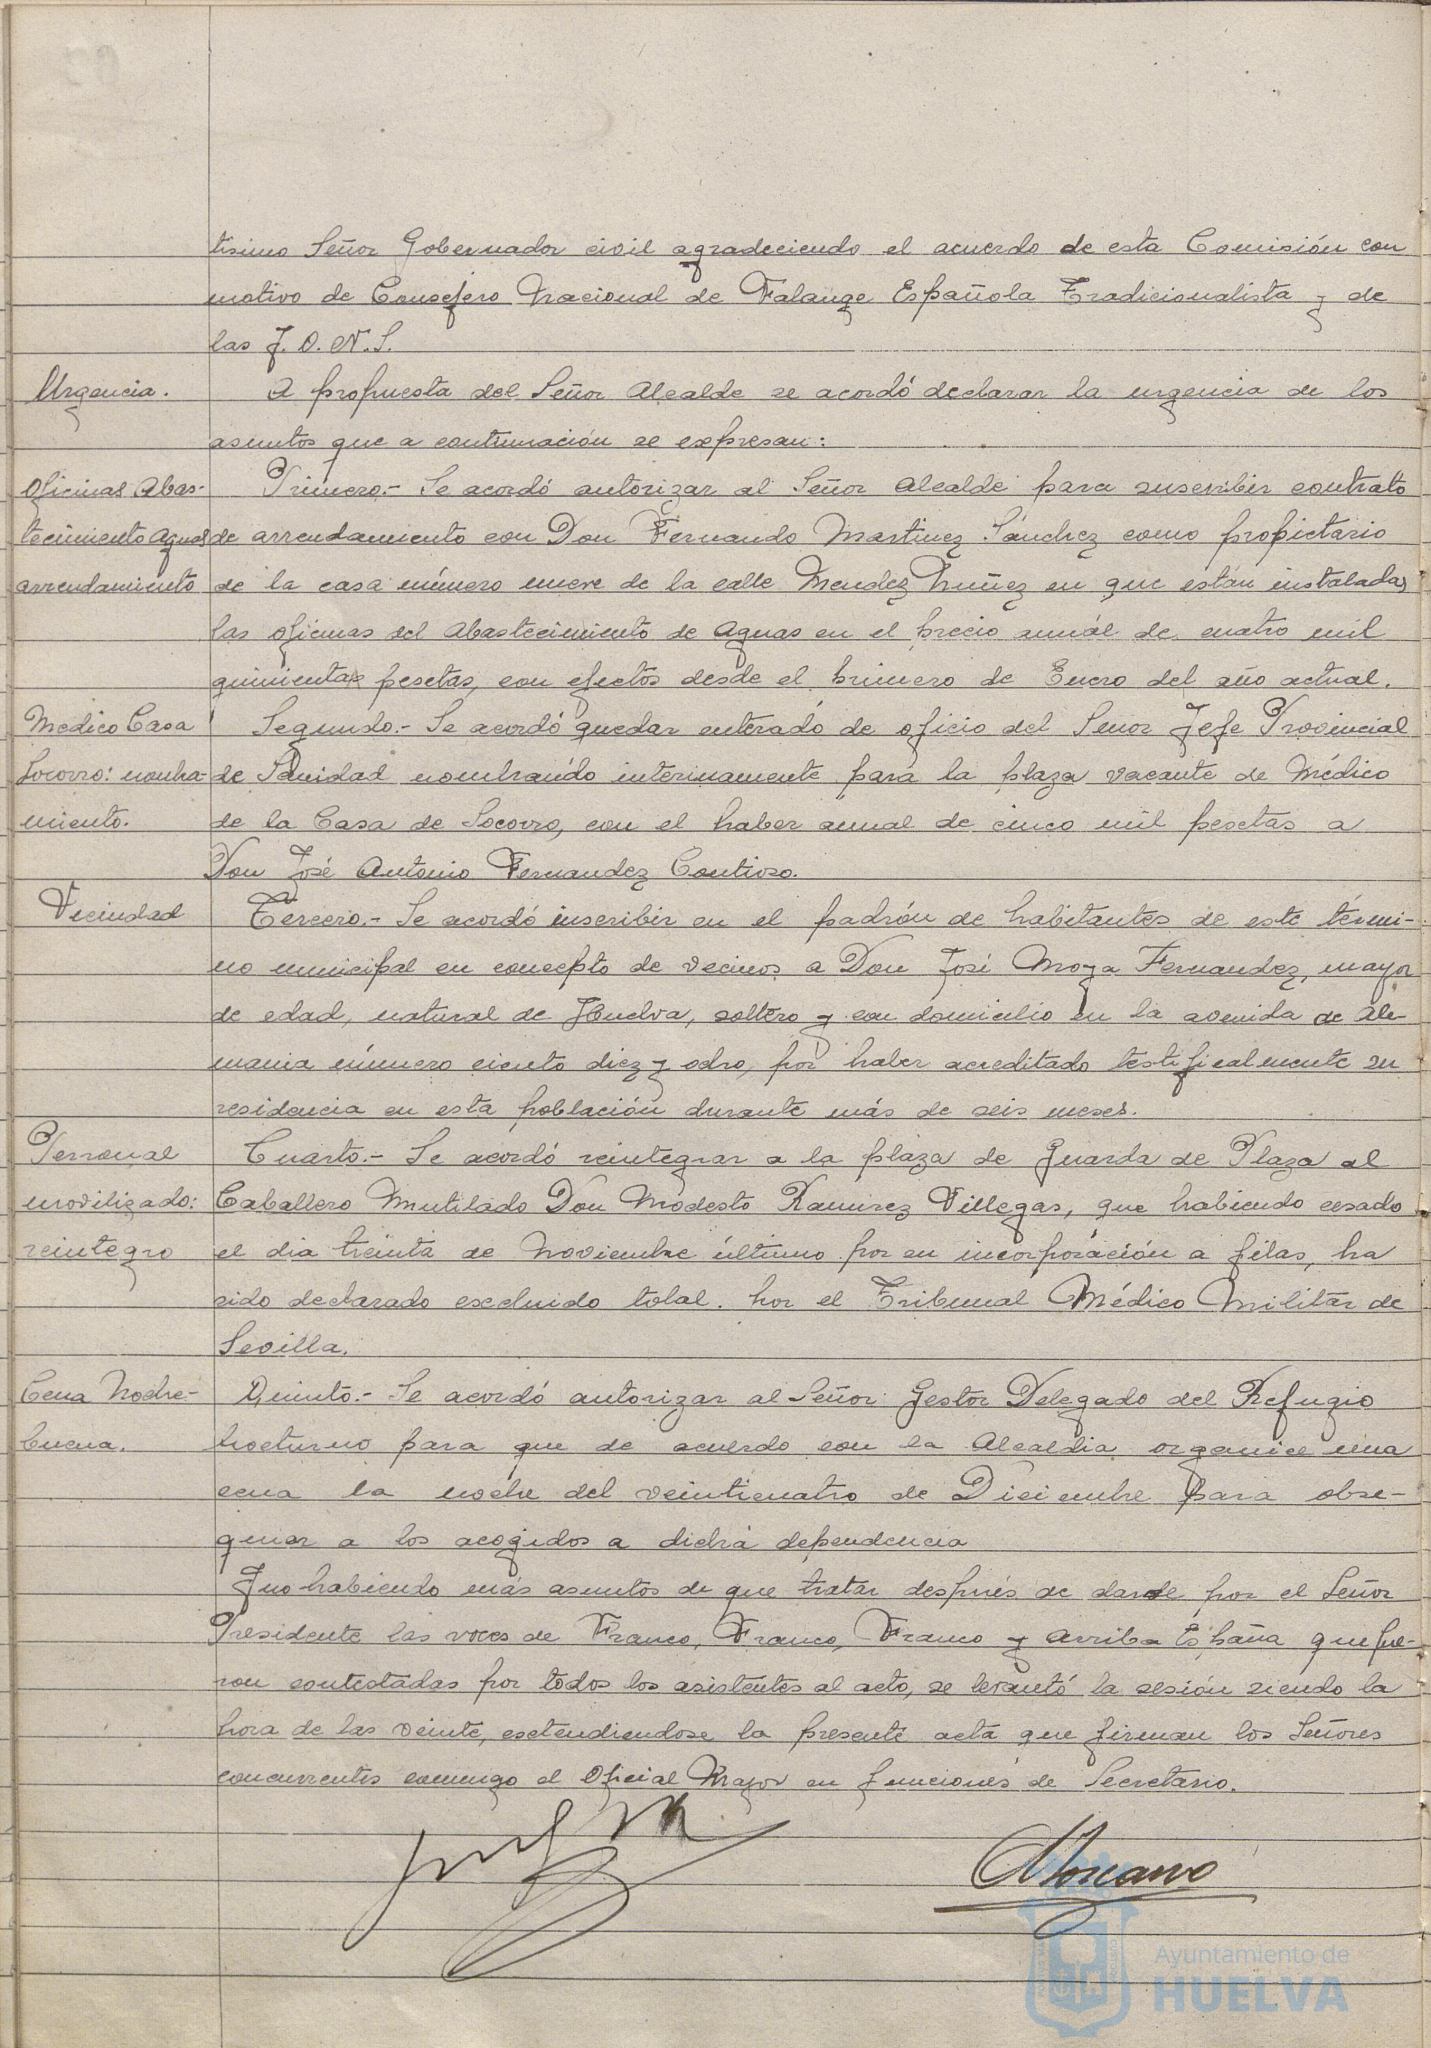 tísimo Señor Gobernador civil agradeciendo el acuerdo de esta Comisión con
motivo de Consejero Nacional de Falange Española Tradicionalista y de
las J.O.N.S.
Urgencia. A propuesta del Señor Alcalde se acordó declarar la urgencia de los
asuntos que a continuación se expresan:
Oficinas Abas- Primero.- Se acordó autorizar al Señor Alcalde para suscribir contrato
tecimiento Aguas de arrendamiento con Don Fernando Martinez Sánchez como propietario
arrendamiento de la casa número nueve de la calle Mendez Nuñez en que están instaladas
las oficinas del Abastecimiento de Aguas en el precio anual de cuatro mil
quinientas pesetas, con efectos desde el primero de Enero del año actual.
Medico Casa Segundo.- Se acordó quedar enterado de oficio del Señor Jefe Provincial
Socorro: nombra- de Sanidad nombrando interinamente para la plaza vacante de Médico
miento. de la Casa de Socorro, con el haber anual de cinco mil pesetas a
Don José Antonio Fernandez Contioso.
Vecindad Tercero.- Se acordó inscribir en el padrón de habitantes de este térmi-
no municipal en concepto de vecinos a Don José Moya Fernandez, mayor
de edad, natural de Huelva, soltero y con domicilio en la avenida de Ale-
mania número ciento diez y ocho, por haber acreditado testificalmente su
residencia en esta población durante más de seis meses.
Personal Cuarto.- Se acordó reintegrar a la plaza de Guarda de Plaza al
movilizado: Caballero Mutilado Don Modesto Ramirez Villegas, que habiendo cesado
reintegro el dia treinta de Noviembre último por su incorporación a filas, ha
sido declarado escluido total. por el Tribunal Médico Militar de
Sevilla.
Cena Noche- Quinto.- Se acordó autorizar al Señor Gestor Delegado del Refugio
buena. Nocturno para que de acuerdo con la Alcaldia organice una
cena la noche del veinticuatro de Diciembre para obse-
quiar a los acogidos a dicha dependencia
Y no habiendo más asuntos de que tratar después de darse por el Señor
Presidente las voces de Franco, Franco, Franco y Arriba España que fue-
ron contestadas por todos los asistentes al acto, se levantó la sesión siendo la
hora de las veinte, estendiendose la presente acta que firman los Señores
concurrentes conmigo el Oficial Mayor en funciones de Secretario.
Ayuntamiento de
HUELVA